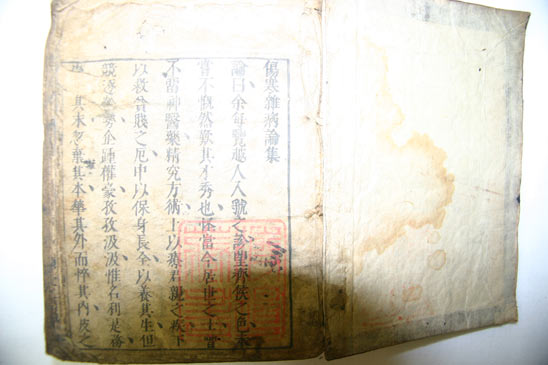 傷寒雜病論集
論曰余每覽越人入虢之診望齊侯之色未
嘗不慨然歎其才秀也怪當今居世之士曾
不留神醫藥精究方術上以療君親之疾下
以救貧賤之厄中以保身長全以養其生但
競逐榮勢企踵權豪孜孜汲汲惟名利是務
其末忽棄其本華其外而悴其內皮之